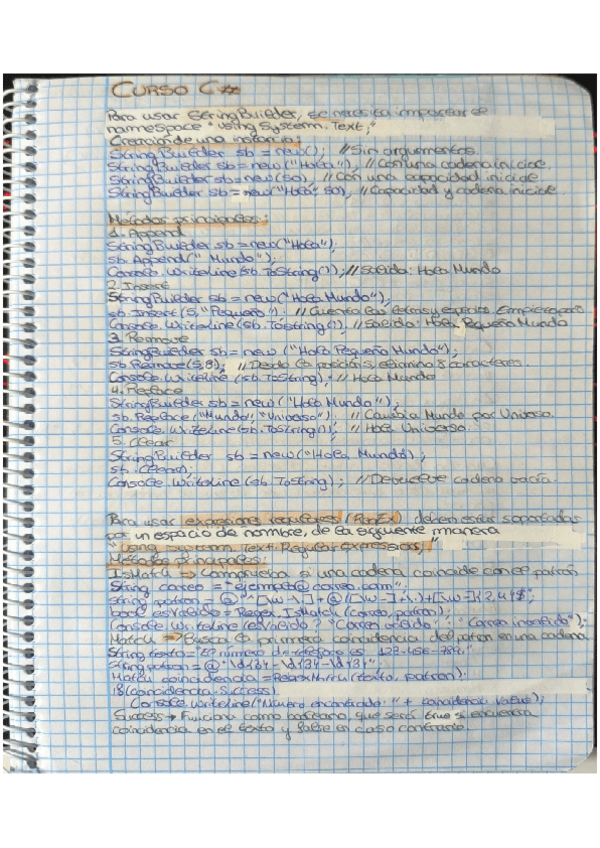 CURSO C#
Para usar StringBuilder, se necesita importar el
namespace "using System.Text;"
Creación de una instancia:
StringBuilder sb = new(); //Sin argumentos.
StringBuilder sb = new("Hola"); //Con una cadena inicial.
StringBuilder sb = new(50); //Con una capacidad inicial.
StringBuilder sb = new("Hola", 50); //Capacidad y cadena inicial.
Métodos principales:
1. Append
StringBuilder sb = new("Hola");
sb.Append(" Mundo");
Console.WriteLine(sb.ToString()); //Salida: Hola Mundo
2. Insert
StringBuilder sb = new("Hola Mundo");
sb.Insert(5, "Pequeño "); //Cuenta las letras y espacio. Empieza por 0
Console.WriteLine(sb.ToString()); //Salida: Hola Pequeño Mundo
3. Remove
StringBuilder sb = new ("Hola Pequeño Mundo");
sb.Remove(5,8); //Desde la posición 5, elimina 8 caracteres.
Console.WriteLine (sb.ToString); //Hola Mundo
4. Replace
StringBuilder sb = new ("Hola Mundo");
sb.Replace("Mundo", "Universo"); //Cambia Mundo por Universo.
Console.WriteLine(sb.ToString()); //Hola Universo.
5. Clear
StringBuilder sb = new("Hola Mundo");
sb.Clear();
Console.WriteLine(sb.ToString); //Devuelve cadena vacía.
Para usar expresiones regulares (RegEx) deben estar soportadas
por un espacio de nombre, de la siguiente manera
"using System.Text.RegularExpressions;"
Métodos principales:
IsMatch → Comprueba si una cadena coincide con el patrón
String correo = "ejemplo@correo.com";
String patron = @"^[\w-\.]+@([\w-]+\.)+[\w-]{2,4}$";
bool esValido = Regex.IsMatch(correo, patron);
Console.WriteLine(esValido ? "Correo válido" : "Correo inválido");
Match → Busca la primera coincidencia del patron en una cadena
String texto = "El número de teléfono es 123-456-789";
String patron = @"\d{3}-\d{3}-\d{3}";
Match coincidencia = Regex.Match(texto, patron);
if(coincidencia.Success)
Console.WriteLine("Número encontrado: " + coincidencia.Value);
Success → Funciona como booleano, que será true si encuentra
coincidencia en el texto y false en caso contrario.